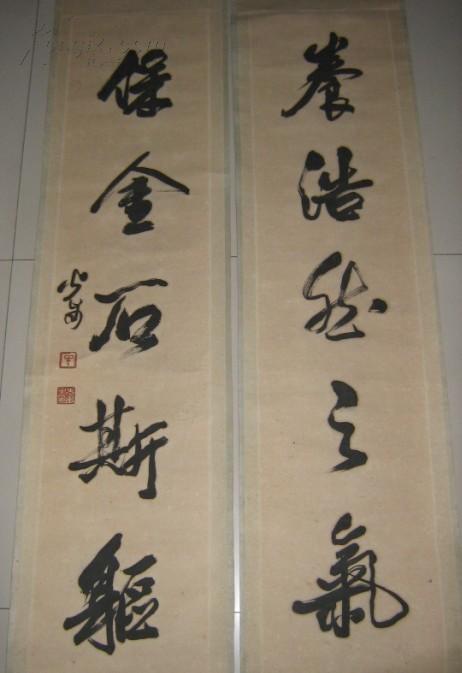 養浩然之氣
保金石斯軀